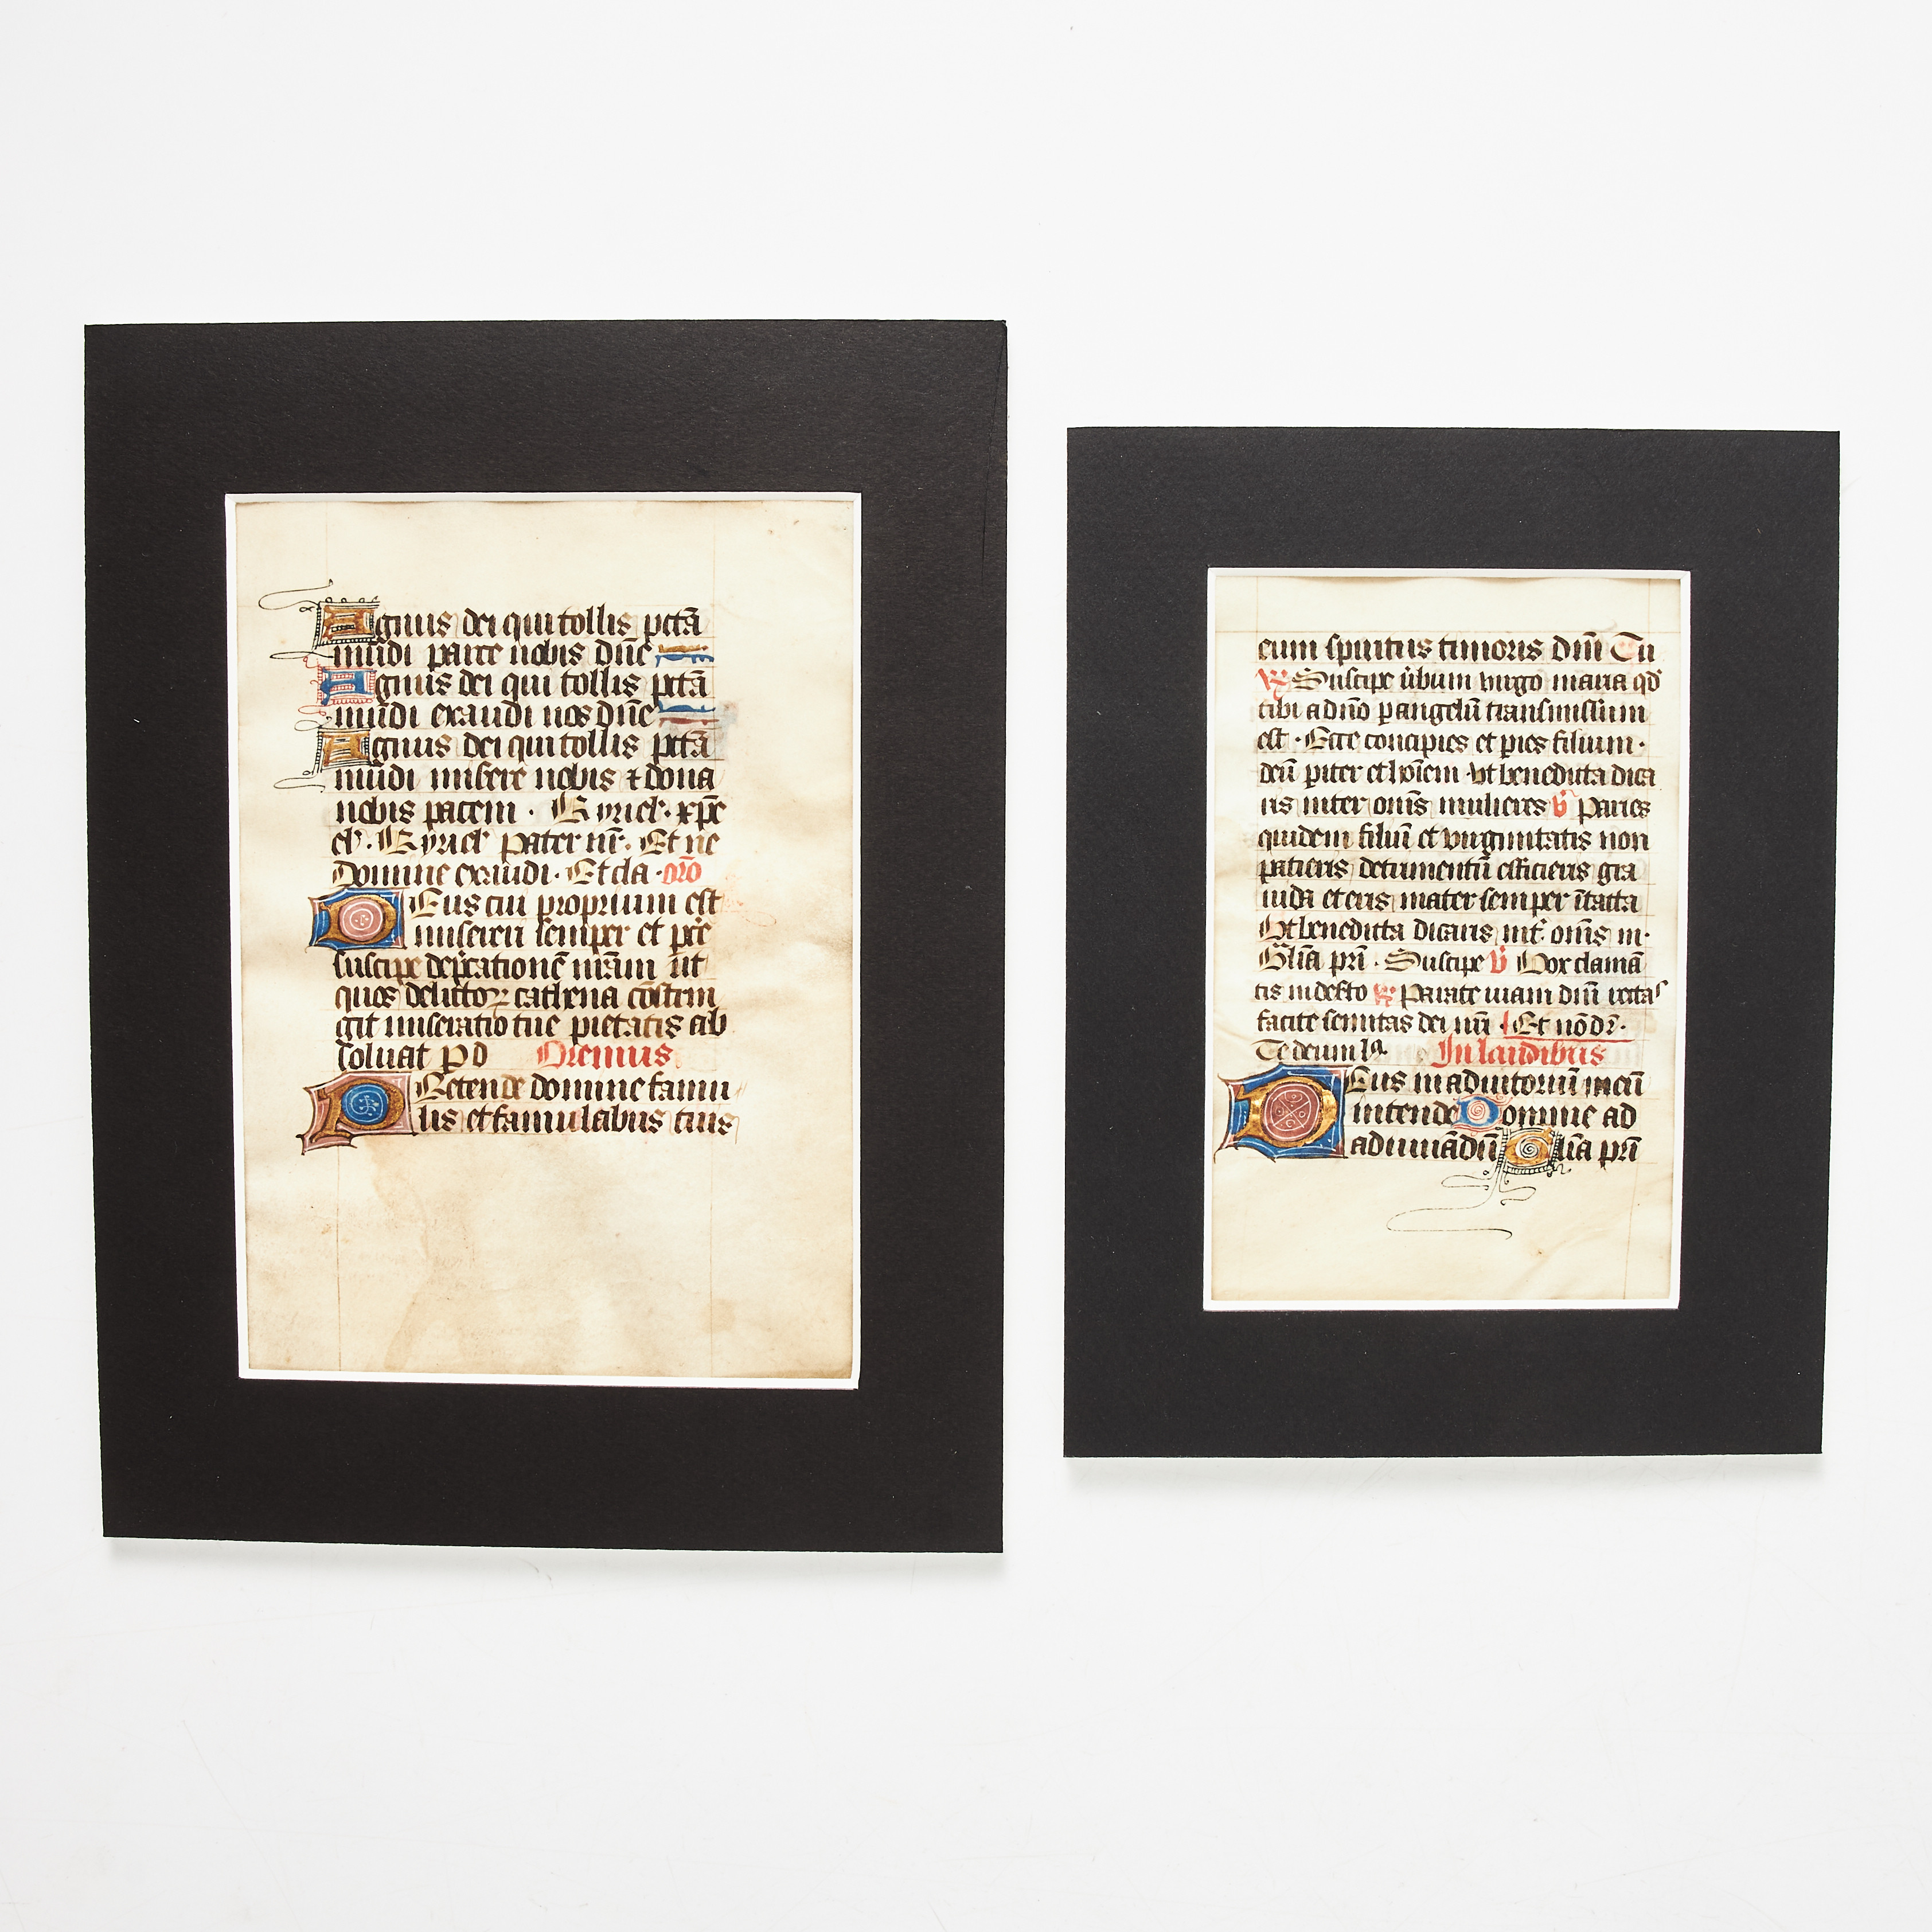 Agnus dei qui tollis pctā
mūdi parce nobis dn̄e
Agnus dei qui tollis pctā
mūdi exaudi nos dn̄e
Agnus dei qui tollis pctā
mūdi miserē nobis ⁊ dona
nobis pacem · Kyriel̓· xp̄e
el̓· Kyriel̓ Pater nr̄· Et ne
Domine exaudi· Et cla · oro
DEus cui proprium est
misereri semper et p̄ce
suscipe dep̄cationē nr̄am ut
quos delictoꝝ cathena cōstrin
git miseratio tue pietatis ab
soluat P d Oremus
PRetende domine famu
lis et famulabus tuis
eum spiritus timoris dn̄i Tu
℟ Suscipe ūbum uirgo maria qd̓
tibi a dn̄o p angelū transmissum
est · Ecce concipies et pies filium ·
deū piter et hoīem Vt benedicta dica
ris inter om̄s mulieres ꝟ Paries
quidem filiū et uirginitatis non
patieris detrimentū efficieris gra
uida et eris mater semper ītacta
Vt benedicta dicaris int̓ om̄s m·
Glīa pri̅ · Suscipe ꝟ Vox clamā
tis in def̓to ℟ Parate uiam dn̄i rectas
facite semitas dei nr̄i Et nō dr̄·
Te deum l̓a In laudibus
DEus in adiutoriū meū
intende Domine ad
adiuuādū Glīa pri̅